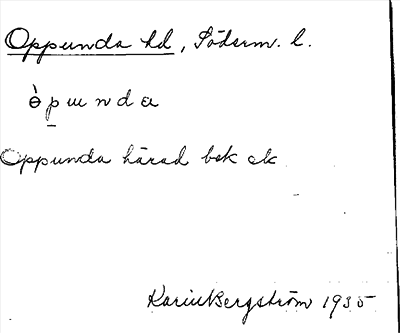 Oppunda hd, Söderm. l.
ɵ̀p̠ɯndɑ
Oppunda härad bok ek
Karin Bergström 1935